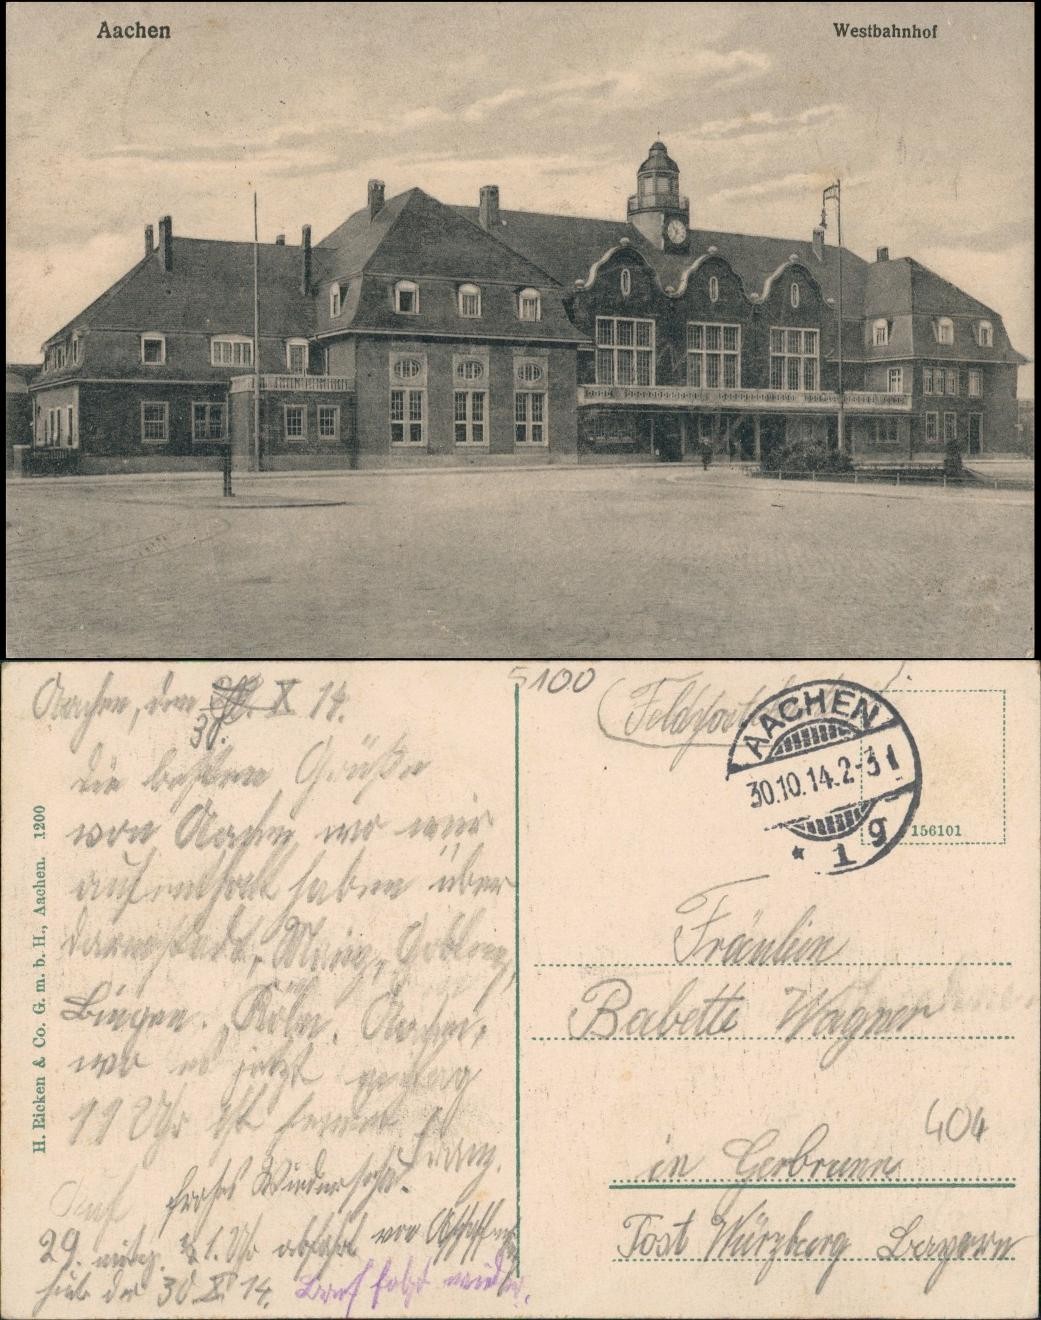 Aachen
Westbahnhof
5100
Aachen, den 30. X 14.
Die besten Grüße
von Aachen, wo wir
aufenthalt haben über
Darmstadt, Mainz, Coblenz,
Bingen. Köln. Aachen,
wo es jetzt
11 Uhr ist
Franz.
Auf frohes Wiedersehn.
29. 1 Uhr abfahrt von
30. X. 14. Brief folgt wieder.
H. Eicken & Co. G. m. b. H., Aachen. 1200
Feldpost
AACHEN
30.10.14.2-3
* 1 g
156101
Fräulein
Babette Wagner
404
in Gerbrunn
Post Würzburg Bayern